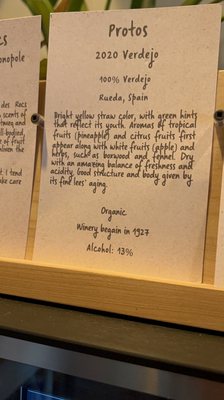 Protos
2020 Verdejo
100% Verdejo
Rueda, Spain
Bright yellow straw color, with green hints
that reflect its youth. Aromas of tropical
fruits (pineapple) and citrus fruits first
appear along with white fruits (apple) and
helps, such as boxwood and fennel. Dry
with an amazing balance of freshness and
acidity. Good structure and body given by
its fine lees' aging.
Organic
Winery began in 1927
Alcohol: 13%
monopole
des Recs
scents of
nutmeg and
ll-bodied,
of fruit
t I tend
ake care